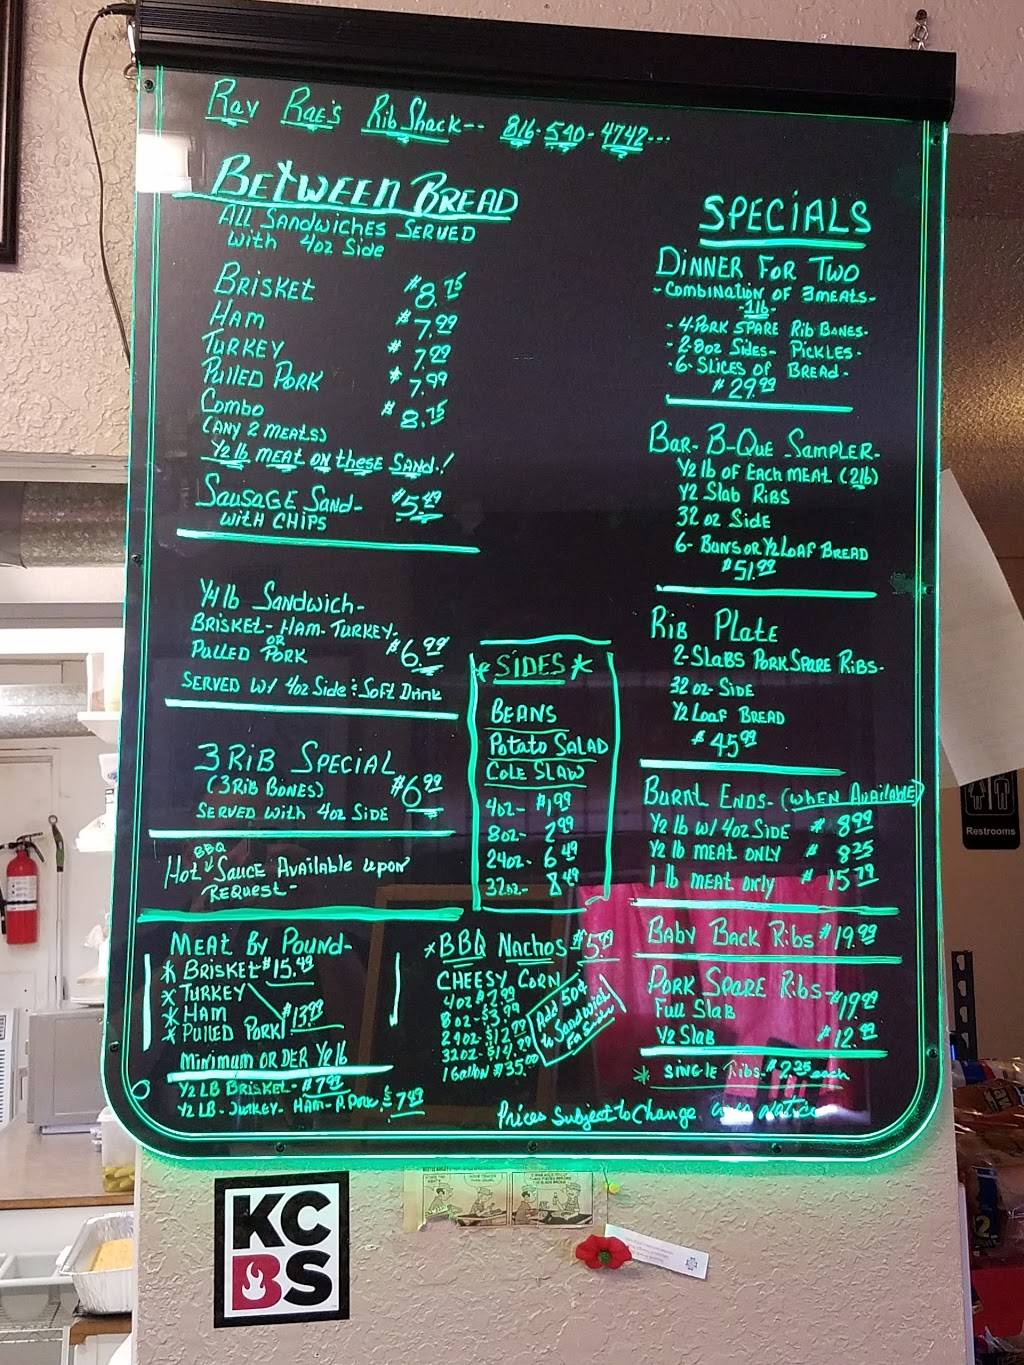 Ray Rae's Rib Shack-- 816-540-4742---
BETWEEN BREAD
ALL SANDWICHES SERVED
with 4oz Side
BRISKET $8.75
HAM $7.99
TURKEY $7.99
PULLED PORK $7.99
Combo $8.75
(ANY 2 MEATS)
1/2 lb MEAT ON these SAND.!
SAUSAGE SAND- $5.49
with CHIPS
1/4 lb SANDWICH-
BRISKET- HAM- TURKEY-
OR
PULLED PORK $6.99
SERVED W/ 4oz Side & Soft Drink
3 RIB SPECIAL
(3 RIB BONES) $6.99
SERVED with 4oz SIDE
BBQ
Hot Sauce Available upon
REQUEST-
MEAT By POUND-
* BRISKET $15.49
* TURKEY
* HAM $13.99
* PULLED PORK
Minimum ORDER 1/2 lb
1/2 LB BRISKET- $7.99
1/2 LB- Turkey- HAM- P. Pork $7.49
*SIDES*
BEANS
Potato SALAD
COLE SLAW
4oz- $1.99
8oz- 2.99
24oz- 6.49
32oz- 8.49
*BBQ NACHOS $5.99
CHEESY CORN
4oz $2.99
8oz- $3.99
24oz- $12.99
32oz- $14.29
1 Gallon $35.00
Add 50¢
to Sandwich
SPECIALS
DINNER FOR TWO
-COMBINATION OF 3 MEATS-
-1lb-
-4-PORK SPARE Rib BONES-
-2-8oz Sides- PICKLES-
-6-SLICES OF BREAD-
$29.99
BAR-B-QUE SAMPLER-
1/2 lb OF EACH MEAT (2lb)
1/2 Slab RIBS
32 oz Side
6- BUNS OR 1/2 LOAF BREAD
$51.99
RIB PLATE
2-SLABS PORK SPARE RIBS-
32 oz- SIDE
1/2 Loaf BREAD
$45.99
BURNT ENDS- (WHEN AVAILABLE)
1/2 lb W/ 4oz SIDE $8.99
1/2 lb MEAT ONLY $8.25
1 lb MEAT ONLY $15.79
BABY BACK RIBS $19.99
PORK SPARE RIBS-
FULL SLAB $19.99
1/2 SLAB $12.99
* SINGLE RIBS- $2.25 each
Prices Subject to Change
KC
BS
Restrooms